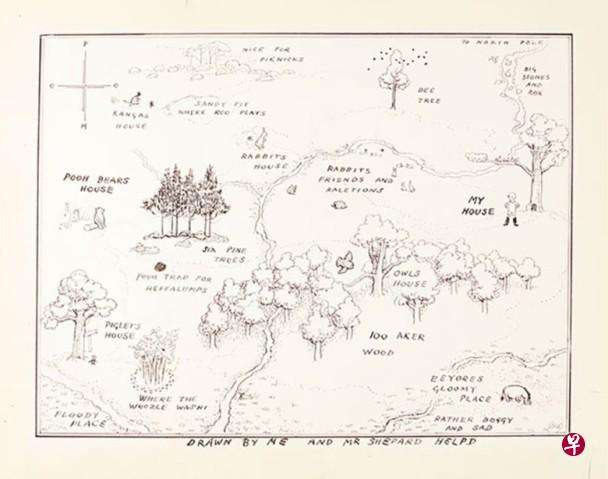 P
O O
H
NICE FOR
PIKNICKS
TO NORTH POLE
BIG
STONES
AND
ROX
BEE
TREE
KANGAS
HOUSE
SANDY PIT
WHERE ROO PLAYS
RABBITS
HOUSE
RABBITS
FRIENDS AND
RALETIONS
POOH BEARS
HOUSE
MY
HOUSE
SIX PINE
TREES
POOH TRAP FOR
HEFFALUMPS
OWLS
HOUSE
PIGLETS
HOUSE
100 AKER
WOOD
WHERE THE
WOOZLE WASNT
EEYORES
GLOOMY
PLACE
FLOODY
PLACE
RATHER BOGGY
AND SAD
DRAWN BY ME AND MR SHEPARD HELPD
早